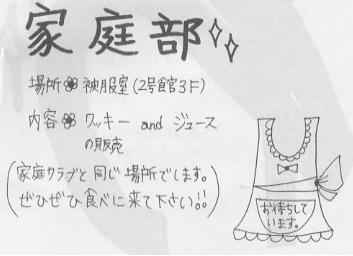 家庭部
場所 被服室(2号館3F)
内容 クッキー and ジュース
の販売
(家庭クラブと同じ場所でします。
ぜひぜひ食べに来て下さい!!)
お待ちして
います。